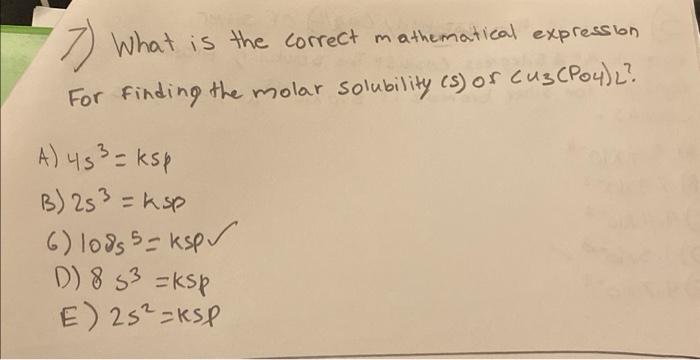 7) What is the correct mathematical expression
For finding the molar solubility (s) of Cu3(PO4)2?
A) 4s³ = ksp
B) 2s³ = ksp
C) 108s⁵ = ksp ✓
D) 8 s³ = ksp
E) 2s² = ksp